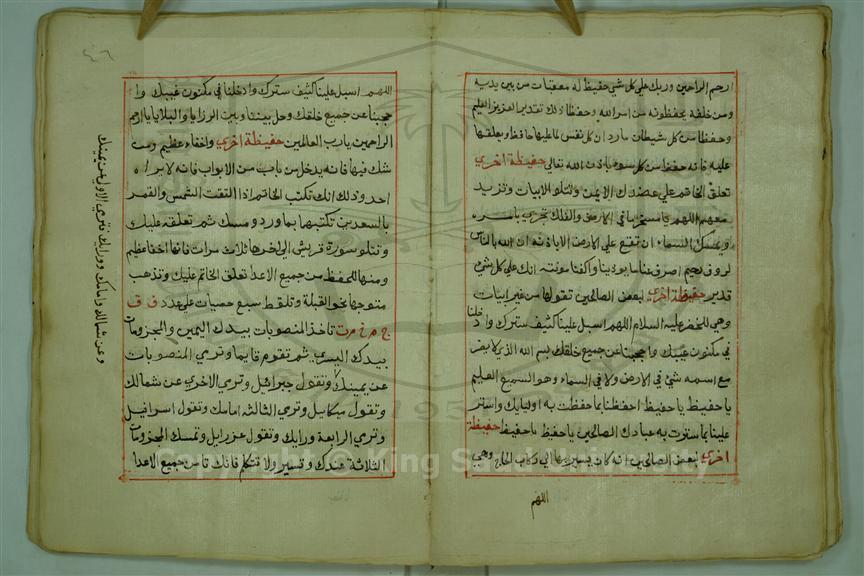 ارحم الراحمين وربك علي كل شي حفيظ له معقبات من بين يديه
ومن خلفه يحفظونه من امر الله وحفظا ذلك تقدير العزيز العليم
وحفظا من كل شيطان مارد ان كل نفس لما عليها حافظ ويعلقها
عليه فانه حفظ من كل سوء باذن الله تعالي حفيظة اخري
تعلق الخاتم علي عضدك الايمن وتتلو الابيات وتزيد
معهم اللهم يا مسخر ما في الارض والفلك تجري بامره
ويمسك السماء ان تقع علي الارض الا باذنه ان الله بالناس
لروف رحيم اصرف عنا ما يوذينا واكفنا مونته انك علي كل شي
قدير حفيظة اخري لبعض الصالحين تقولها من غير ابيات
وهي للخضر عليه السلام اللهم اسبل علينا كثيف سترك وادخلنا
في مكنون غيبك واحجبنا عن جميع خلقك بسم الله الذي لا يضر
مع اسمه شي في الارض ولا في السماء وهو السميع العليم
يا حفيظ يا حفيظ احفظنا بما حفظت به اوليايك واستر
علينا بما سترت به عبادك الصالحين يا حفيظ يا حفيظ حفيظة
اخري لبعض الصالحين انه كان يسير بها الي ركاب الحاج وهي
اللهم
٤٦
اللهم اسبل علينا كثيف سترك وادخلنا في مكنون غيبك وا
حجبنا عن جميع خلقك وحل بيننا وبين الرزايا والبلايا يا ارحم
الراحمين يا رب العالمين حفيظة اخري واخفاء عظيم ومن
شك فيها فانه يدخل من باب من الابواب فانه لا يراه
احد وذلك انك تكتب الخاتم اذا التقت الشمس والقمر
بالسعدين تكتبهما بماورد ومسك ثم تعلقه عليك
وتتلو سورة قريش الي اخرها ثلاث مرات فانها اخفا عظيم
ومنها للحفظ من جميع الاعدا تعلق الخاتم عليك وتذهب
متوجها نحو القبلة وتلقط سبع حصيات علي عدد ف ق
تاخذ المنصوبات بيدك اليمين والمجزومات
بيدك اليسري ثم تقوم قايما وترمي المنصوبات
عن يمينك وتقول جبرائيل وترمي الاخري عن شمالك
وتقول ميكايل وترمي الثالثه امامك وتقول اسرافيل
وترمي الرابعة ورايك وتقول عزرايل وتمسك المجزومات
الثلاثة عندك وتسير ولا تتكلم فانك تامن جميع الاعدا
وعن شمالك وامامك وورايك وترمي الاول عن يمينك